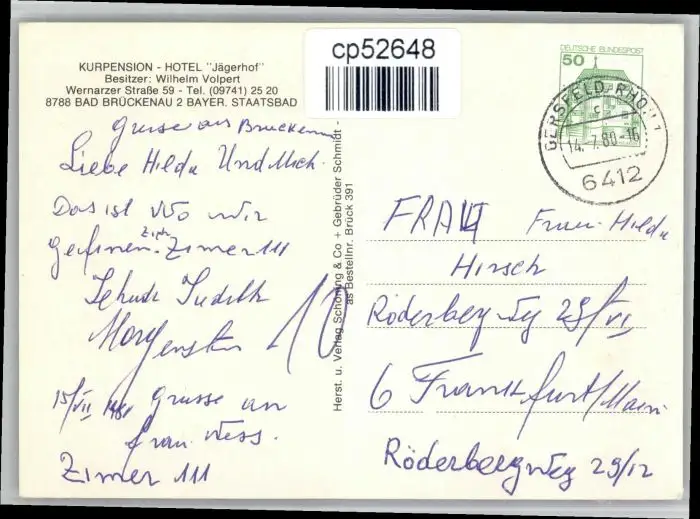 KURPENSION - HOTEL "Jägerhof"
Besitzer: Wilhelm Volpert
Wernarzer Straße 59 - Tel. (09741) 25 20
8788 BAD BRÜCKENAU 2 BAYER. STAATSBAD
cp52648
DEUTSCHE BUNDESPOST
50
GERSFELD, RHÖN 1
14.-7.80-16
6412
Grüsse aus Brückenau
Liebe Hilda Und
Das ist Wo wir
Zimer 111
Jehuda Judith
Morgenstern
10
15/VII Grusse an
Frau Hess.
Zimer 111
Herst. u. Verlag Schöning & Co + Gebrüder Schmidt -
as Bestellnr. Brück 391
FRAU Frau Hilda
Hirsch
Röderberg Weg 29/VI
6 Frankfurt/Main
Röderbergweg 29/12